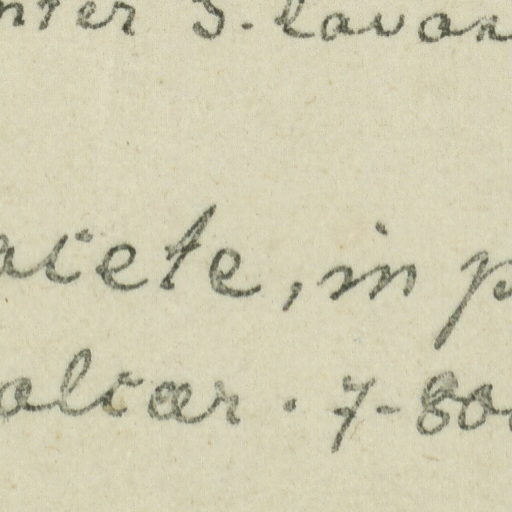 nter S. lavan
acete, in p
alcar. 7-800